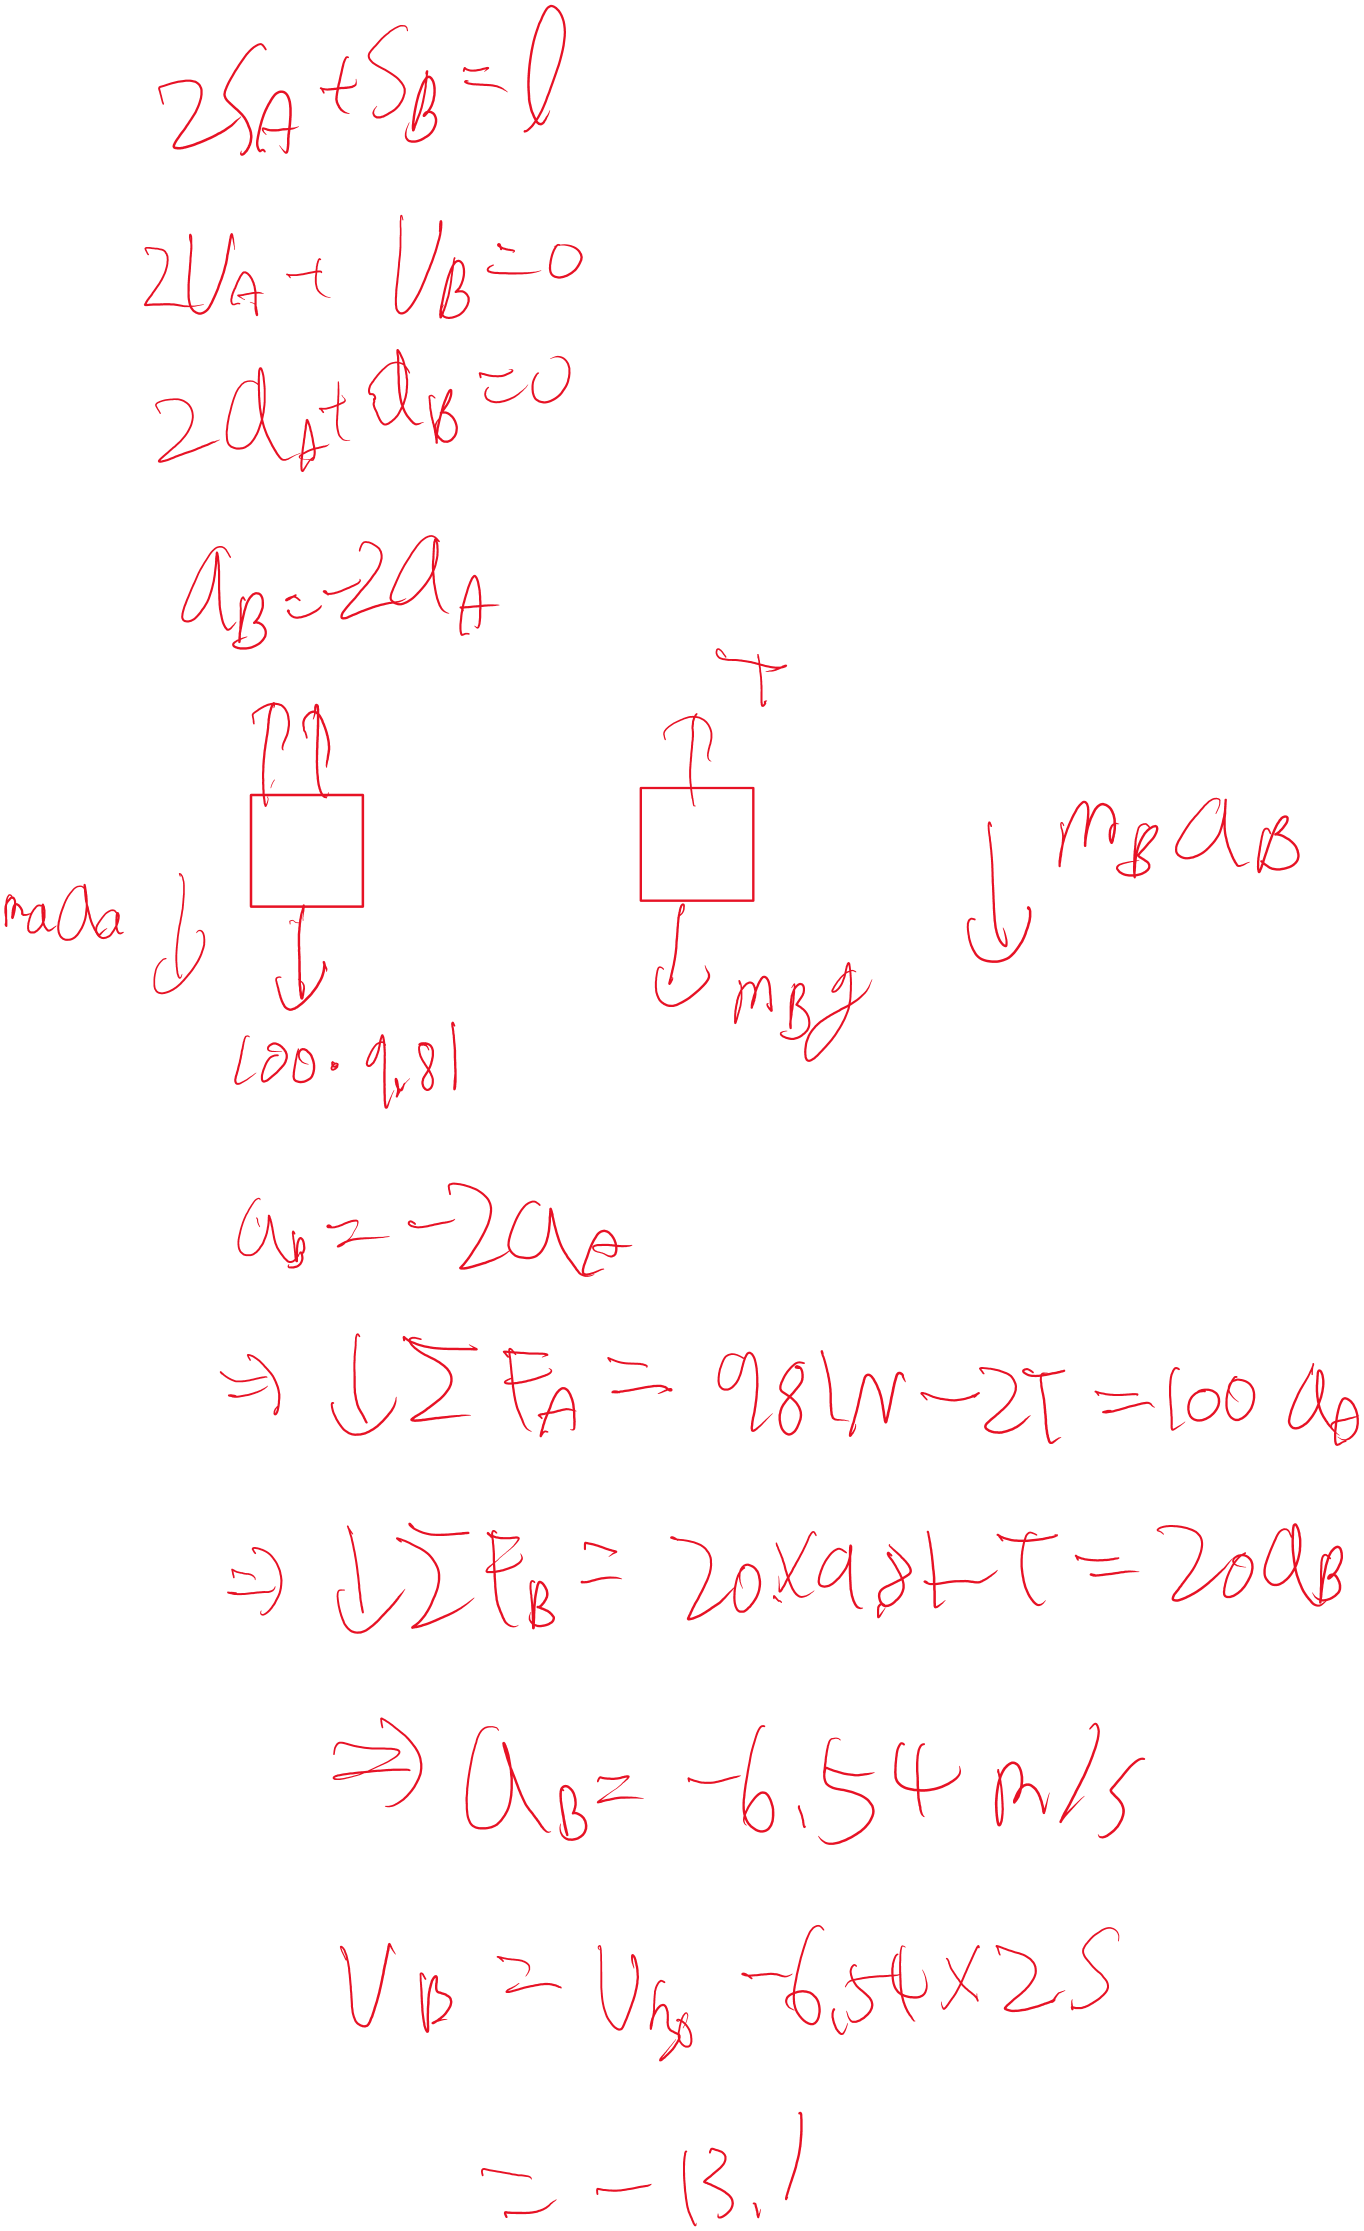 2S_A + S_B = l
2V_A + V_B = 0
2a_A + a_B = 0
a_B = -2a_A
T
m_B a_B
m_a a_a
m_B g
100 · 9.81
a_B = -2a_A
⇒ ↓ΣF_A = 981N - 2T = 100 a_A
⇒ ↓ΣF_B = 20×9.81 - T = 20a_B
⇒ a_B = -6.54 m/s
V_B = - 6.54 × 2s
= -13.1